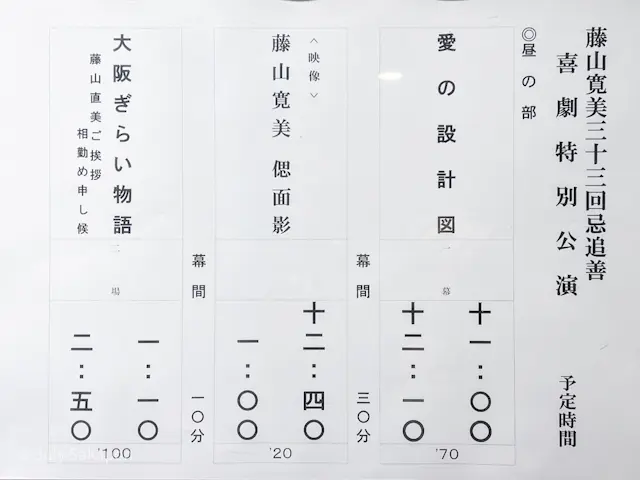 藤山寛美三十三回忌追善
喜劇特別公演
予定時間
◎昼の部
愛の設計図
一幕
十一:〇〇
十二:一〇
'70
幕間
三〇分
〈映像〉
藤山寛美 偲面影
十二:四〇
一:〇〇
'20
幕間
一〇分
大阪ぎらい物語
藤山直美ご挨拶
相勤め申し候
二場
一:一〇
二:五〇
'100